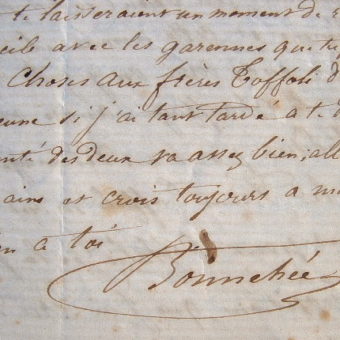 te laisseraient un moment de r
eib avec les garennes que tu
choses aux frères Toffoli d
eune si j'ai tant tardé a t
nté des deux va assez bien, all
ains et crois toujours a m
n a toi
Bounehée